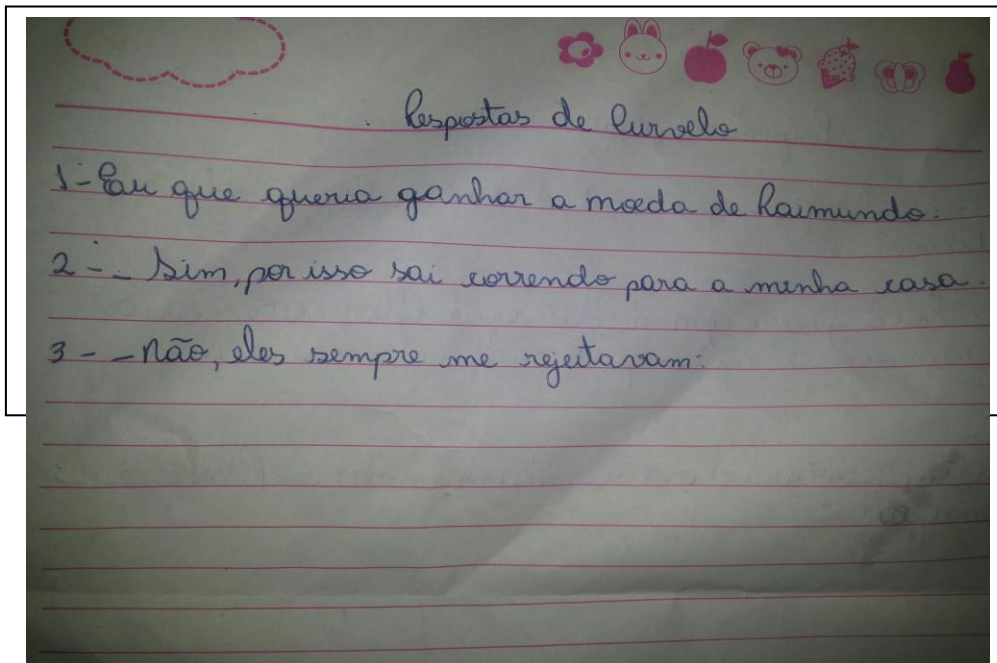 Respostas de Curvelo
1- Eu que queria ganhar a moeda de Raimundo.
2 - _ Sim, por isso sai correndo para a minha casa.
3 - _ não, eles sempre me rejeitavam.